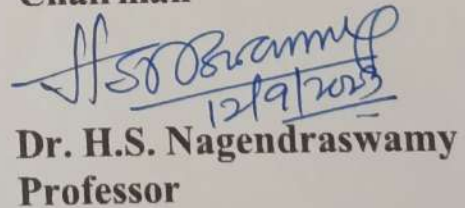 Chairman
12/9/2023
Dr. H.S. Nagendraswamy
Professor